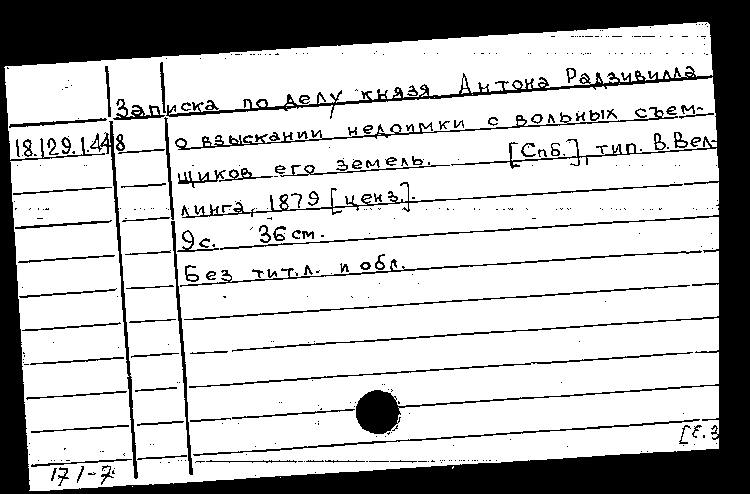 Записка по делу князя Антона Радзивилла
18.129.1.448 о взыскании недоимки с вольных съем-
щиков его земель. [Спб.], тип. В. Вел-
линга, 1879 [ценз.].
9с. 36см.
Без тит.л. и обл.
[Е.3
171-7